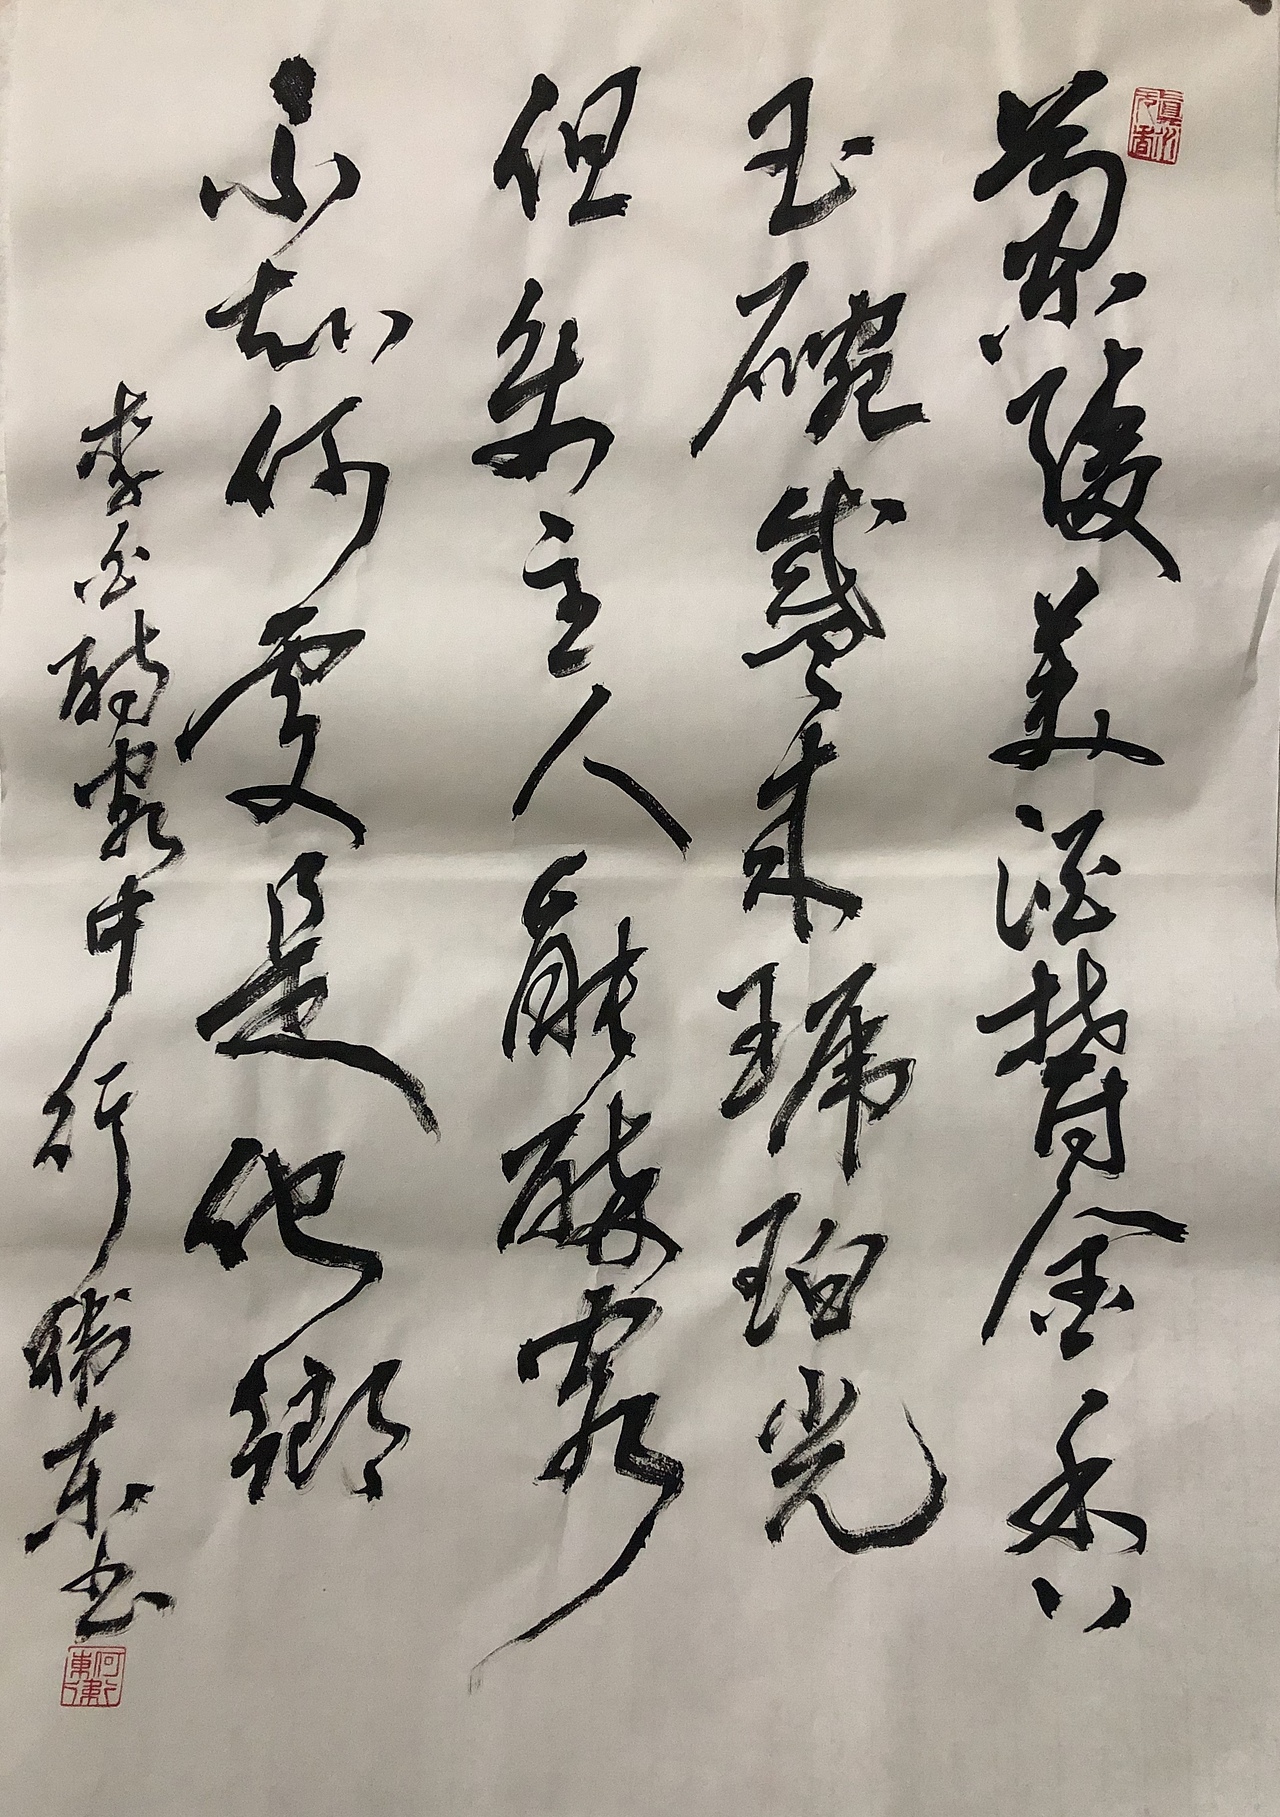 真水无香
蘭陵美酒鬱金香
玉碗盛來琥珀光
但使主人能醉客
不知何處是他鄉
李白詩客中行 衛東書
何衛東印